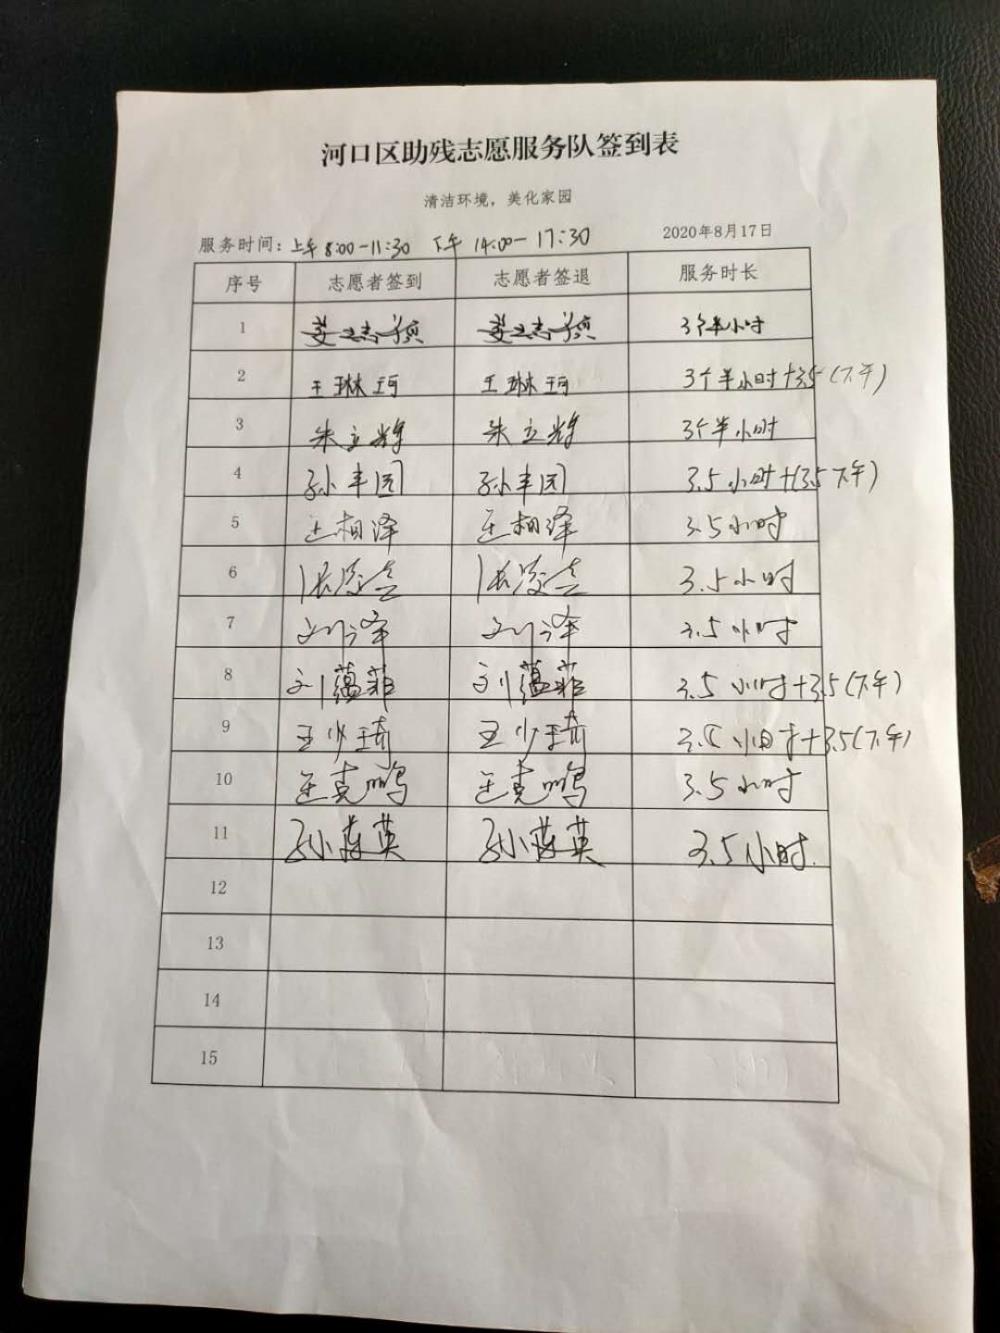 河口区助残志愿服务队签到表
清洁环境，美化家园
服务时间：上午8:00-11:30 下午 14:00-17:30 2020年8月17日
序号 志愿者签到 志愿者签退 服务时长
1 3个半小时
2 王琳珂 王琳珂 3个半小时+3.5(下午)
3 朱立辉 朱立辉 3个半小时
4 孙丰园 孙丰园 3.5小时+(3.5下午)
5 王相泽 王相泽 3.5小时
6 3.5小时
7 刘泽 刘泽 3.5小时
8 刘蕴菲 刘蕴菲 3.5小时+3.5(下午)
9 王少琦 王少琦 3.5小时+3.5(下午)
10 王克鸣 王克鸣 3.5小时
11 3.5小时.
12
13
14
15